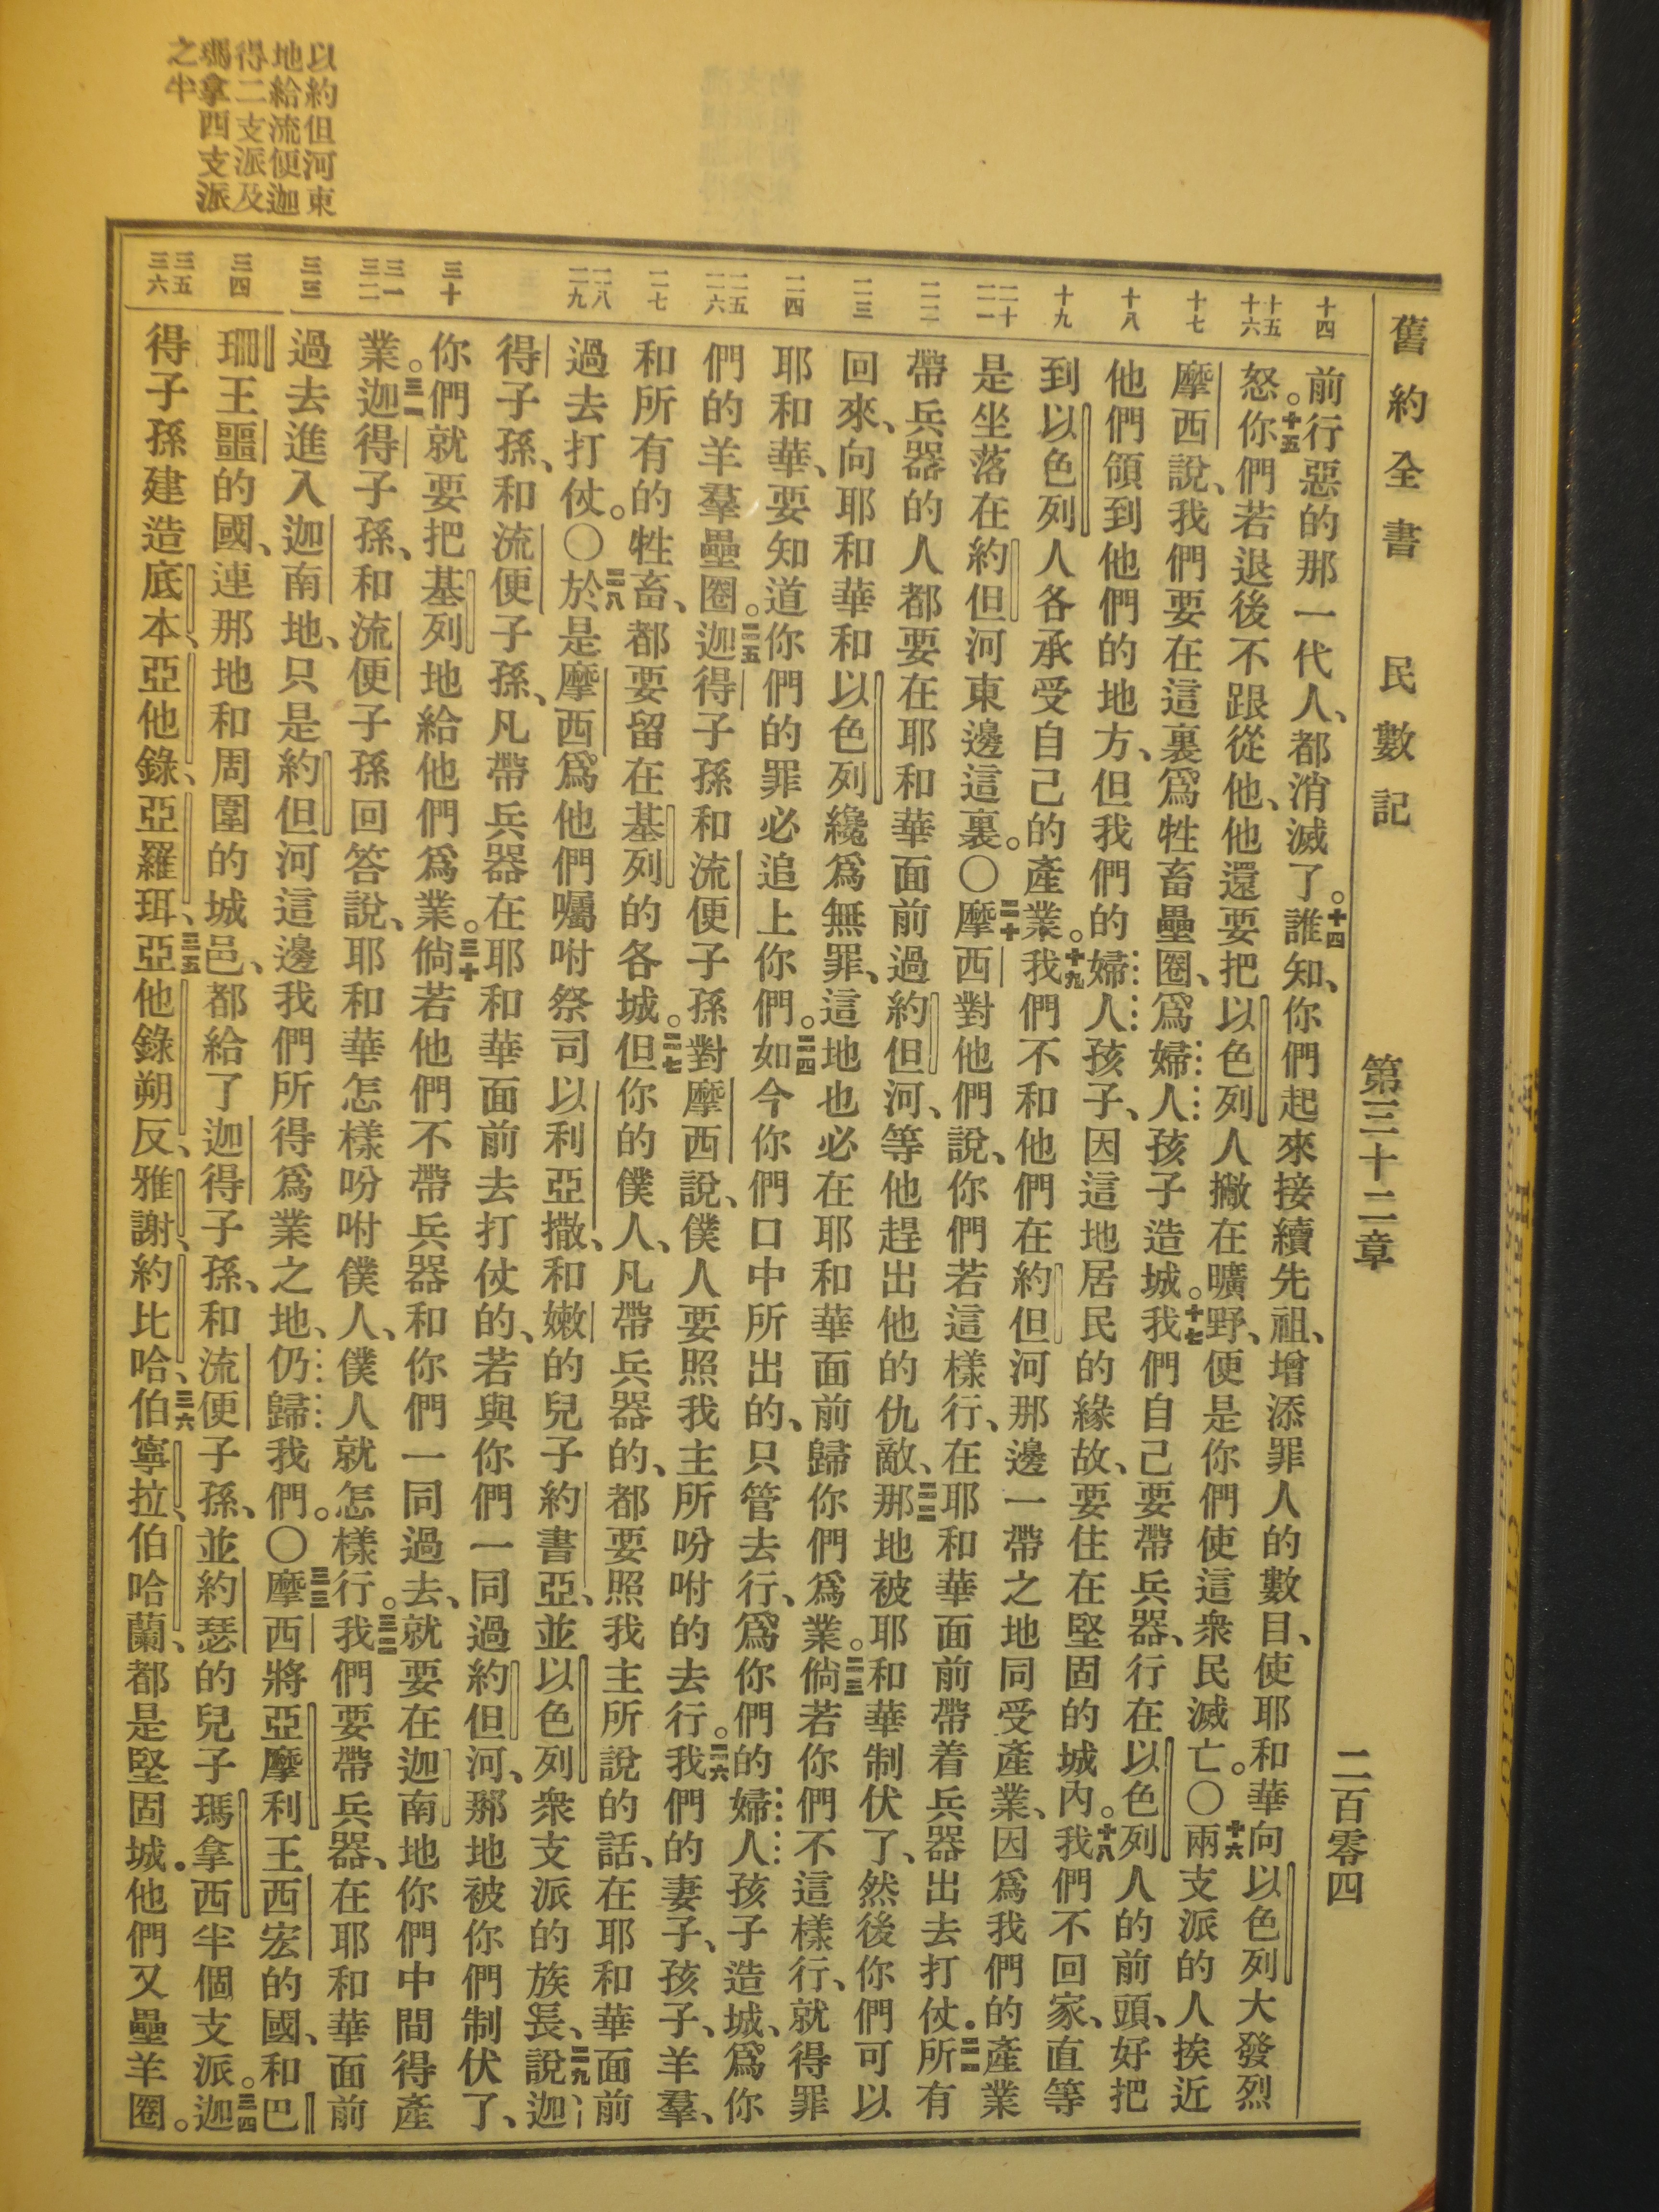 舊約全書 民數記 第三十二章 二百零四
十四
十五
十六
十七
十八
十九
二十
二一
二二
二三
二四
二五
二六
二七
二八
二九
三十
三一
三二
三三
三四
三五
三六
前行惡的那一代人、都消滅了。十四誰知、你們起來接續先祖、增添罪人的數目、使耶和華向以色列大發烈
怒。十五你們若退後不跟從他、他還要把以色列人撇在曠野、便是你們使這衆民滅亡。〇十六兩支派的人挨近
摩西說、我們要在這裏爲牲畜壘圈、爲婦人孩子造城。十七我們自己要帶兵器、行在以色列人的前頭、好把
他們領到他們的地方、但我們的婦人孩子、因這地居民的緣故、要住在堅固的城內。十八我們不回家、直等
到以色列人各承受自己的產業。十九我們不和他們在約但河那邊一帶之地同受產業、因爲我們的產業
是坐落在約但河東邊這裏。〇二十摩西對他們說、你們若這樣行、在耶和華面前帶着兵器出去打仗．二一所有
帶兵器的人都要在耶和華面前過約但河、等他趕出他的仇敵、二二那地被耶和華制伏了、然後你們可以
回來、向耶和華和以色列纔爲無罪、這地也必在耶和華面前歸你們爲業。二三倘若你們不這樣行、就得罪
耶和華、要知道你們的罪必追上你們。二四如今你們口中所出的、只管去行、爲你們的婦人孩子造城、爲你
們的羊羣壘圈。二五迦得子孫和流便子孫對摩西說、僕人要照我主所吩咐的去行。二六我們的妻子、孩子、羊羣、
和所有的牲畜、都要留在基列的各城。二七但你的僕人、凡帶兵器的、都要照我主所說的話、在耶和華面前
過去打仗。〇二八於是摩西爲他們囑咐祭司以利亞撒、和嫩的兒子約書亞、並以色列衆支派的族長、二九說、迦
得子孫、和流便子孫、凡帶兵器在耶和華面前去打仗的、若與你們一同過約但河、那地被你們制伏了、
你們就要把基列地給他們爲業。三十倘若他們不帶兵器和你們一同過去、就要在迦南地你們中間得產
業。三一迦得子孫、和流便子孫回答說、耶和華怎樣吩咐僕人、僕人就怎樣行。三二我們要帶兵器、在耶和華面前
過去進入迦南地、只是約但河這邊我們所得爲業之地、仍歸我們。〇三三摩西將亞摩利王西宏的國、和巴
珊王噩的國、連那地和周圍的城邑、都給了迦得子孫、和流便子孫、並約瑟的兒子瑪拿西半個支派。三四迦
得子孫建造底本、亞他錄、亞羅珥、三五亞他錄朔反、雅謝、約比哈、三六伯寧拉、伯哈蘭、都是堅固城．他們又壘羊圈。
以約但河東
地給流便迦
得二支派及
瑪拿西支派
之半